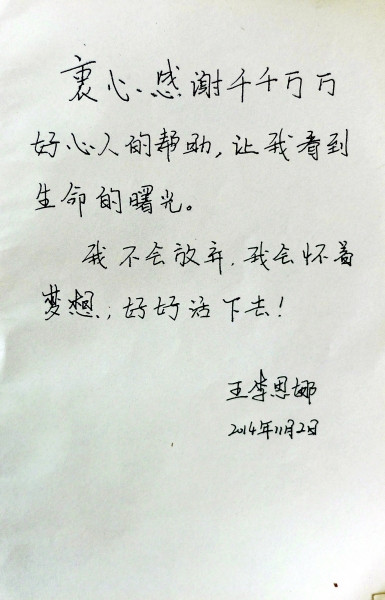 衷心感谢千千万万
好心人的帮助,让我看到
生命的曙光。
我不会放弃.我会怀着
梦想,好好活下去!
王李思娜
2014年11月2日